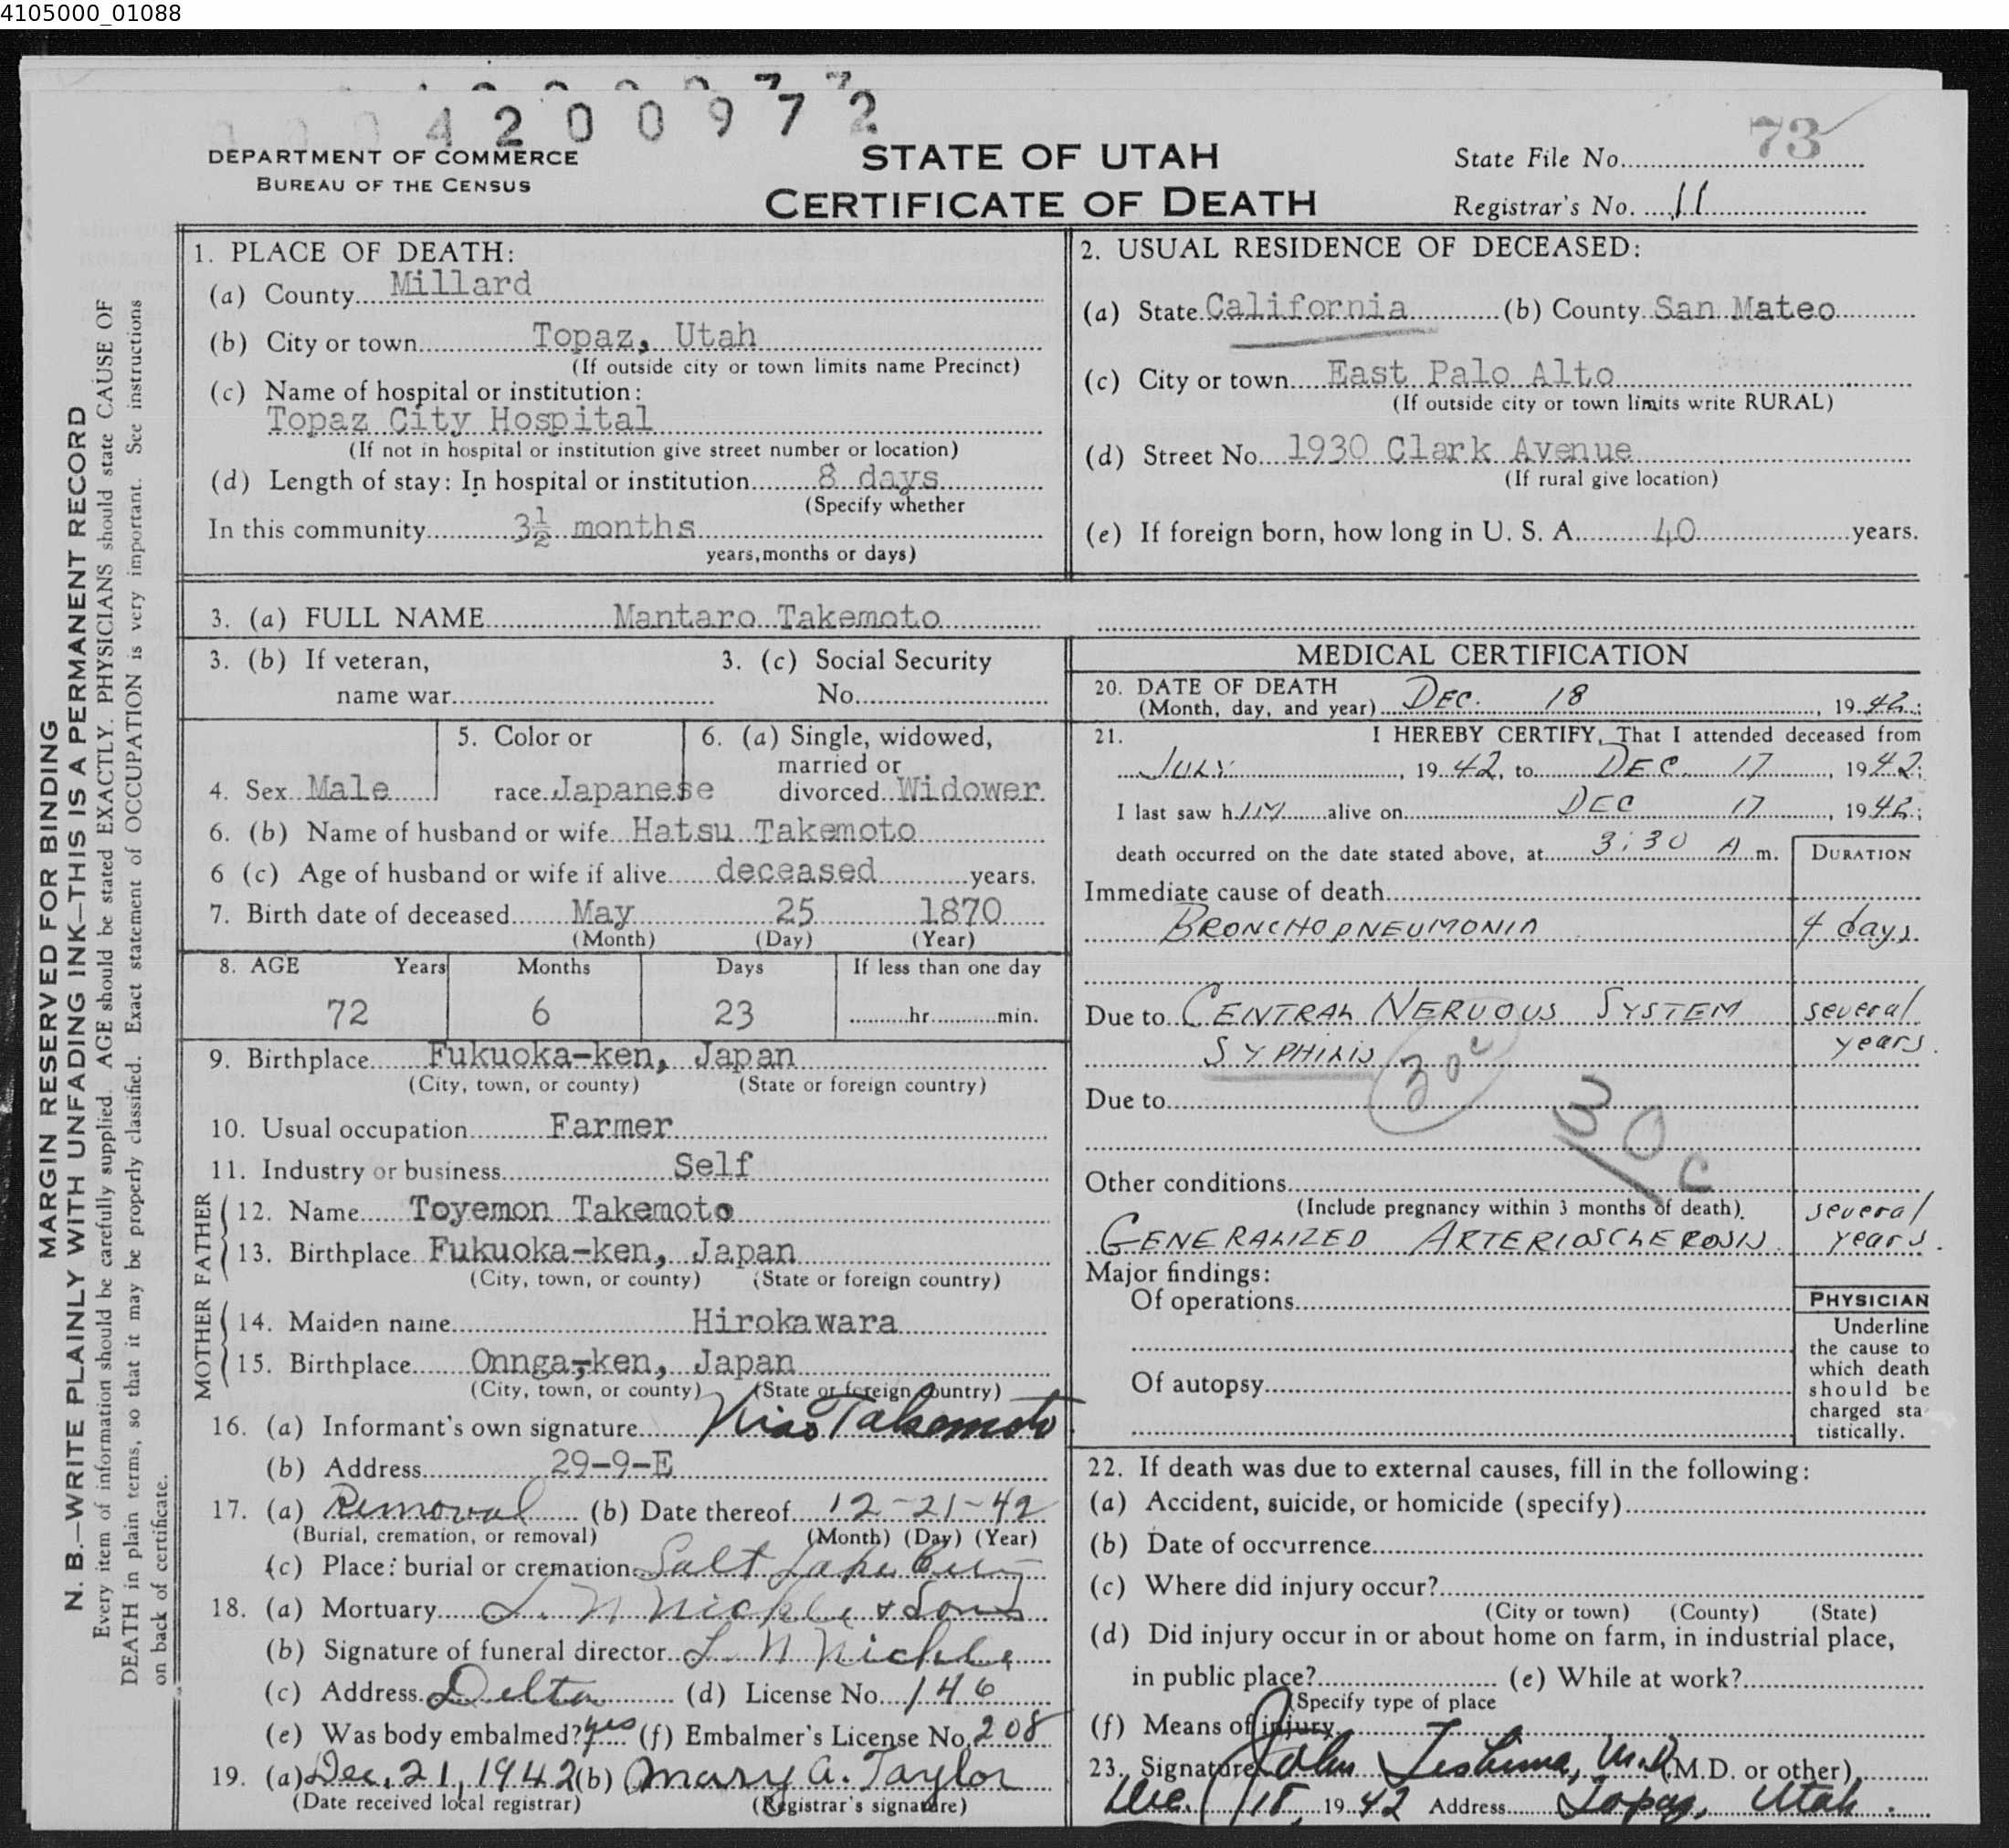 4105000_01088
4 2 0 0 9 7 2
DEPARTMENT OF COMMERCE
BUREAU OF THE CENSUS
STATE OF UTAH
CERTIFICATE OF DEATH
State File No. 73
Registrar's No. 11
MARGIN RESERVED FOR BINDING
N. B.—WRITE PLAINLY WITH UNFADING INK—THIS IS A PERMANENT RECORD
Every item of information should be carefully supplied. AGE should be stated EXACTLY. PHYSICIANS should state CAUSE OF
DEATH in plain terms, so that it may be properly classified. Exact statement of OCCUPATION is very important. See instructions
on back of certificate.
1. PLACE OF DEATH:
(a) County Millard
(b) City or town Topaz, Utah
(If outside city or town limits name Precinct)
(c) Name of hospital or institution:
Topaz City Hospital
(If not in hospital or institution give street number or location)
(d) Length of stay: In hospital or institution 8 days
(Specify whether
In this community 3½ months
years, months or days)
2. USUAL RESIDENCE OF DECEASED:
(a) State California (b) County San Mateo
(c) City or town East Palo Alto
(If outside city or town limits write RURAL)
(d) Street No. 1930 Clark Avenue
(If rural give location)
(e) If foreign born, how long in U. S. A. 40 years.
3. (a) FULL NAME Mantaro Takemoto
3. (b) If veteran, 3. (c) Social Security
name war No.
4. Sex Male
5. Color or
race Japanese
6. (a) Single, widowed,
married or
divorced Widower.
6. (b) Name of husband or wife Hatsu Takemoto
6 (c) Age of husband or wife if alive deceased years.
7. Birth date of deceased May 25 1870
(Month) (Day) (Year)
8. AGE Years Months Days If less than one day
72 6 23 hr. min.
9. Birthplace Fukuoka-ken, Japan
(City, town, or county) (State or foreign country)
10. Usual occupation Farmer
11. Industry or business Self
FATHER
12. Name Toyemon Takemoto
13. Birthplace Fukuoka-ken, Japan
(City, town, or county) (State or foreign country)
MOTHER
14. Maiden name Hirokawara
15. Birthplace Onnga-ken, Japan
(City, town, or county) (State or foreign country)
16. (a) Informant's own signature Takemoto
(b) Address 29-9-E
17. (a) Removal (b) Date thereof 12-21-42
(Burial, cremation, or removal) (Month) (Day) (Year)
(c) Place: burial or cremation Salt Lake City
18. (a) Mortuary L. N Nickle & Sons
(b) Signature of funeral director L. N Nickle
(c) Address Delta (d) License No. 146
(e) Was body embalmed? yes (f) Embalmer's License No. 208
19. (a) Dec. 21, 1942 (b) Mary A. Taylor
(Date received local registrar) (Registrar's signature)
MEDICAL CERTIFICATION
20. DATE OF DEATH
(Month, day, and year) DEC. 18, 1942;
21. I HEREBY CERTIFY, That I attended deceased from
JULY, 1942, to DEC 17, 1942;
I last saw h IM alive on DEC 17, 1942;
death occurred on the date stated above, at 3:30 A m.
DURATION
Immediate cause of death
BRONCHOPNEUMONIA 4 days
Due to CENTRAL NERVOUS SYSTEM several
SYPHILIS years.
30c
Due to
30c
Other conditions
(Include pregnancy within 3 months of death). several
GENERALIZED ARTERIOSCLEROSIS. years.
Major findings:
Of operations
Of autopsy
PHYSICIAN
Underline
the cause to
which death
should be
charged sta-
tistically.
22. If death was due to external causes, fill in the following:
(a) Accident, suicide, or homicide (specify)
(b) Date of occurrence
(c) Where did injury occur?
(City or town) (County) (State)
(d) Did injury occur in or about home on farm, in industrial place,
in public place? (e) While at work?
(Specify type of place
(f) Means of injury
23. Signature John Teshima, M.D. (M.D. or other)
Dec. 18, 1942 Address Topaz, Utah.